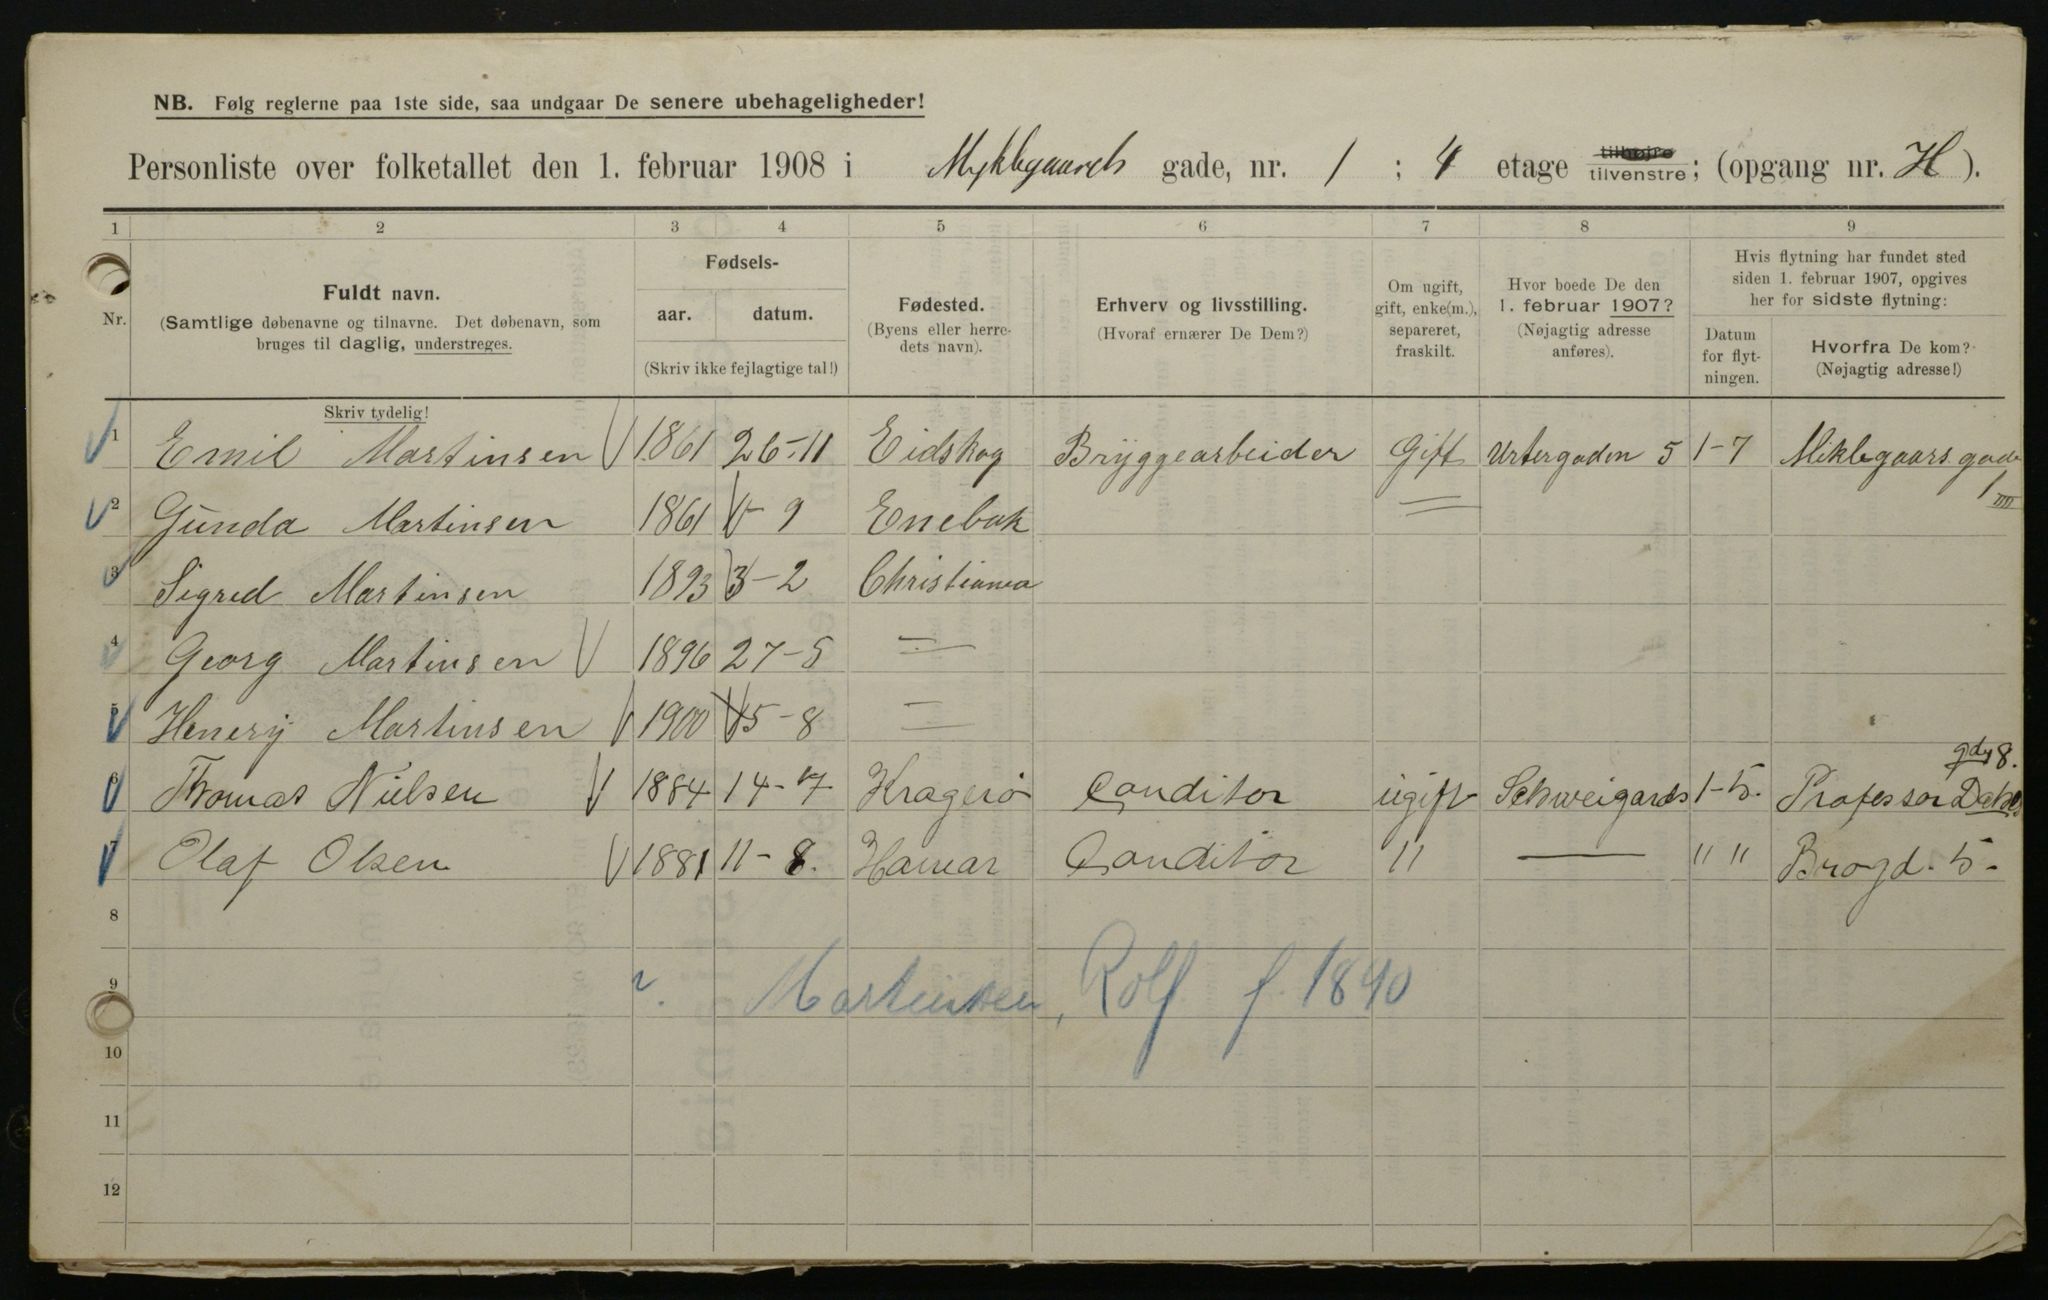 NB. Følg reglerne paa 1ste side, saa undgaar De senere ubehageligheder!
Personliste over folketallet den 1. februar 1908 i Myklegaards gade, nr. 1 ; 4 etage tilhøjre tilvenstre; (opgang nr. H ).
1 2 3 4 5 6 7 8 9
Nr.
Fuldt navn.
(Samtlige døbenavne og tilnavne. Det døbenavn, som
bruges til daglig, understreges.
Fødsels-
aar. datum.
(Skriv ikke fejlagtige tal!)
Fødested.
(Byens eller herre-
dets navn).
Erhverv og livsstilling.
(Hvoraf ernærer De Dem?)
Om ugift,
gift, enke(m.),
separeret,
fraskilt.
Hvor boede De den
1. februar 1907?
(Nøjagtig adresse
anføres).
Hvis flytning har fundet sted
siden 1. februar 1907, opgives
her for sidste flytning:
Datum
for flyt-
ningen.
Hvorfra De kom?
(Nøjagtig adresse!)
Skriv tydelig!
1 Emil Martinsen 1861 26-11 Eidskog Bryggearbeider Gift Urtergaden 5 1-7 Miklegaars gade
1 IIII
2 Gunda Martinsen 1861 - 9 Enebak =
3 Sigred Martinsen 1893 3-2 Christiania
4 Georg Martinsen 1896 27-5 =
5 Henery Martinsen 1900 5-8 =
gd 8.
6 Thomas Nielsen 1884 14-7 Kragerø Conditor ugift Schweigards 1-5. Professor Dahls
7 Olaf Olsen 1881 11-8. Hamar Conditor " — " " Brogd. 5-
8
9 Martinsen, Rolf f. 1890
10
11
12